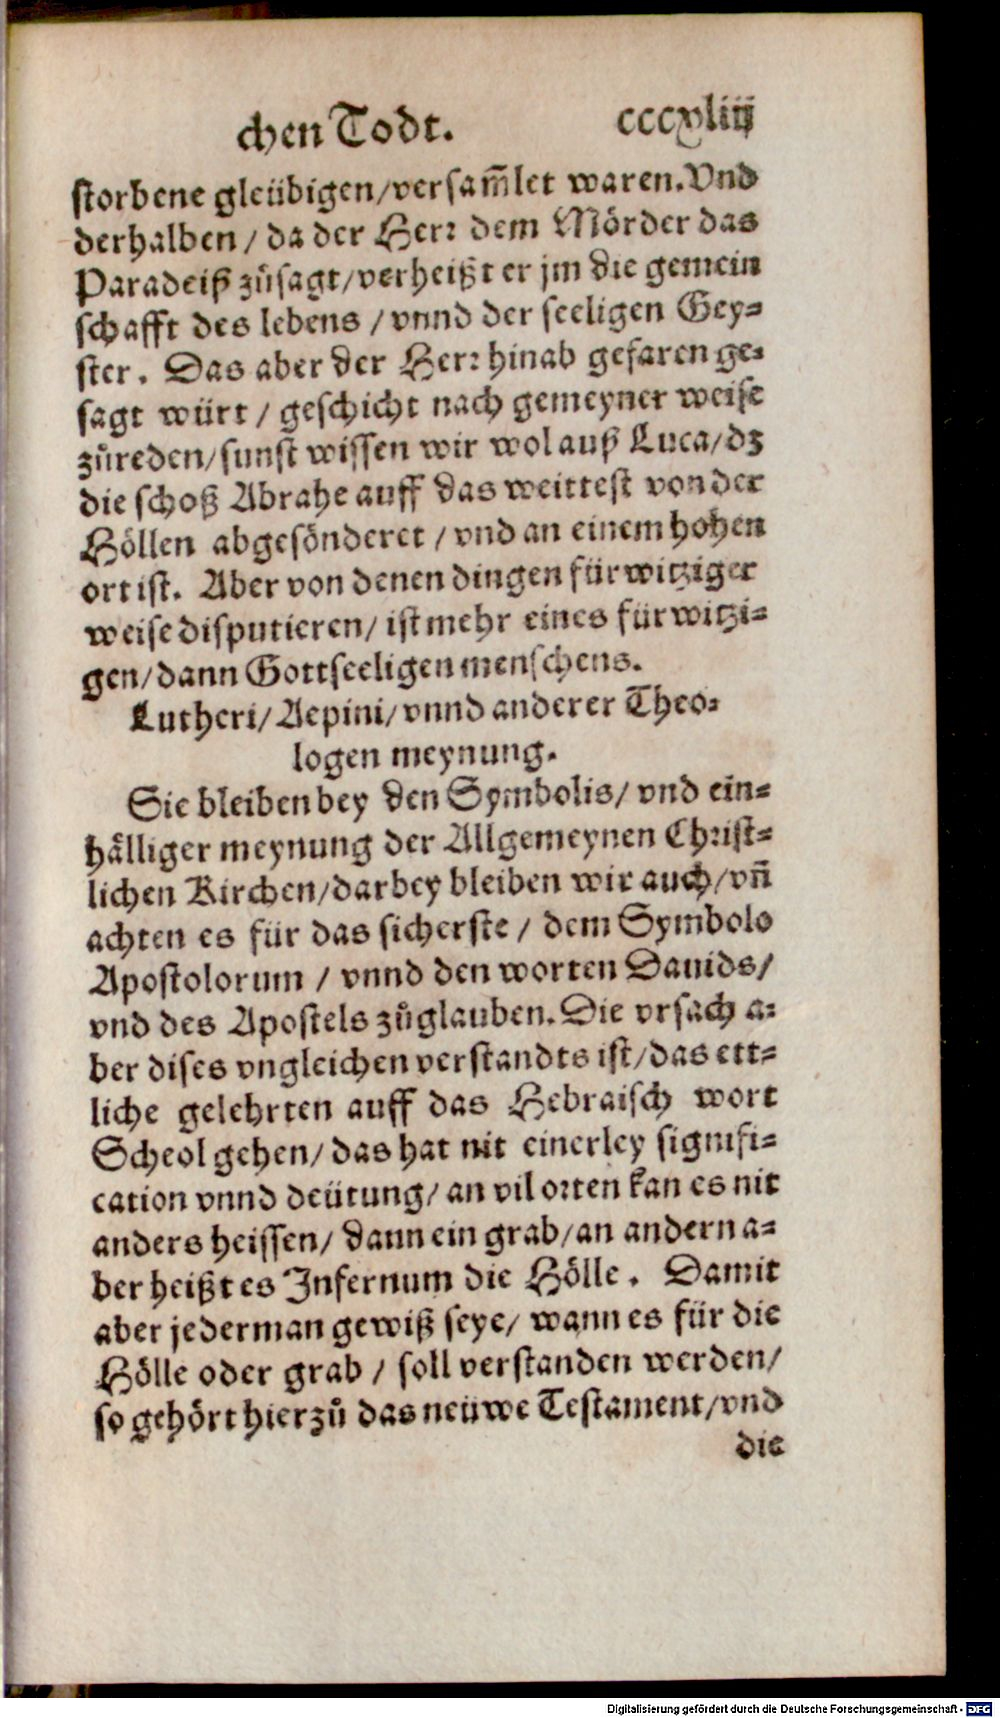 chen Todt. cccxliij
storbene gleübigen/versam̃let waren. Vnd
derhalben / da der Herr dem Mörder das
Paradeiß zůsagt/verheißt er jm die gemein
schafft des lebens / vnnd der seeligen Gey-
ster. Das aber der Herr hinab gefaren ge-
sagt würt / geschicht nach gemeyner weise
zůreden/sunst wissen wir wol auß Luca/dz
die schoß Abrahe auff das weittest von der
Höllen abgesönderet / vnd an einem hohen
ort ist. Aber von denen dingen fürwitziger
weise disputieren/ ist mehr eines fürwitzi-
gen/dann Gottseeligen menschens.
Lutheri/Aepini/vnnd anderer Theo-
logen meynung.
Sie bleiben bey den Symbolis/ vnd ein-
hälliger meynung der Allgemeynen Christ-
lichen Kirchen/darbey bleiben wir auch/vñ
achten es für das sicherste / dem Symbolo
Apostolorum / vnnd den worten Dauids/
vnd des Apostels zůglauben. Die vrsach a-
ber dises vngleichen verstandts ist/das ett-
liche gelehrten auff das Hebraisch wort
Scheol gehen/das hat nit einerley signifi-
cation vnnd deütung/an vil orten kan es nit
anders heissen/ dann ein grab/an andern a-
ber heißt es Infernum die Hölle. Damit
aber jederman gewiß seye/ wann es für die
Hölle oder grab / soll verstanden werden/
so gehört hierzů das neüwe Testament/vnd
die
Digitalisierung gefördert durch die Deutsche Forschungsgemeinschaft - DFG